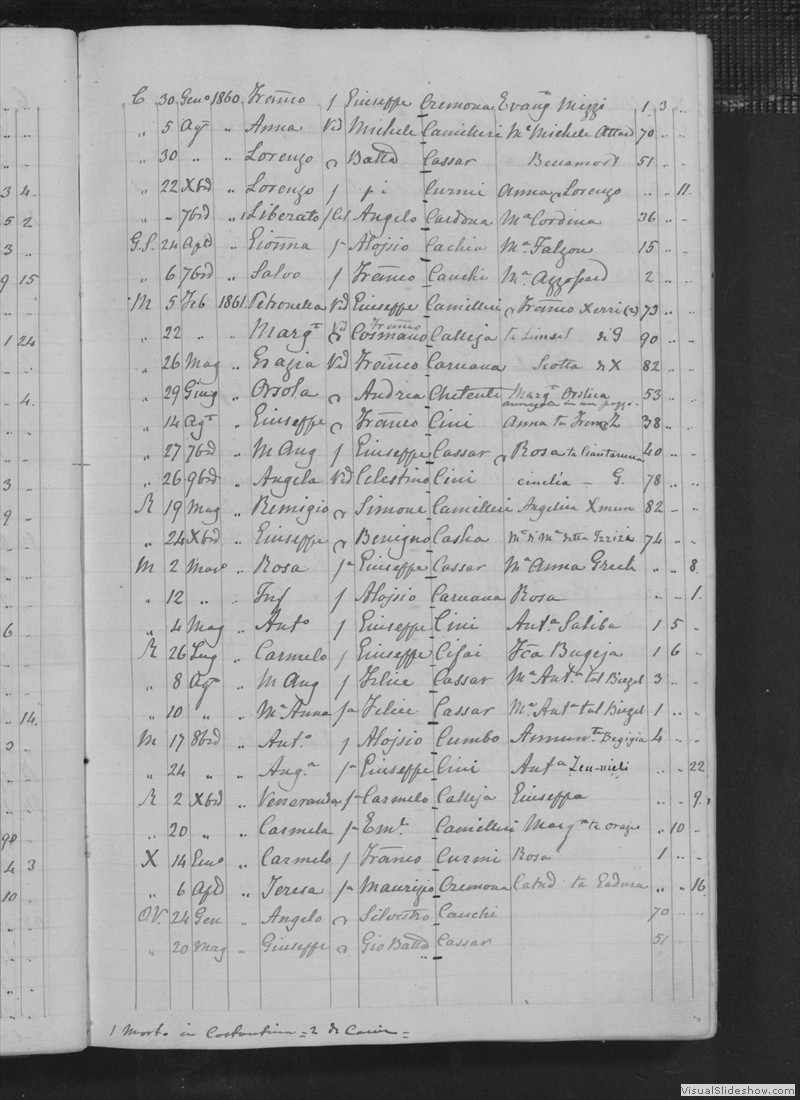 C 30 Gen° 1860 Franco f Giuseppe Cremona Evang Mizzi 1 3 ..
" 5 Agt " Anna Vd Michele Camilleri Ma Michele Attard 70 .. ..
" 30 " " Lorenzo Batta Cassar Benamort 51 .. -
" 22 Xbre " Lorenzo f p i Curmi Anna Lorenzo .. .. 11
3 4 " - 7bre " 1 Liberato f Cel Angelo Cardona Ma Cordina 36 .. -
5 2 G.S. 24 Aple " Gioanna fa Aloisio Cachia Ma Falzon 15 .. -
3 .. " 6 7bre " Salvo f Franco Cauchi Ma Azzopard 2 .. -
9 15 M 5 Feb 1861 Petronella Vd Giuseppe Camilleri Franco Xerri (2) 73 .. -
1 24 " 22 " . Margt Vd Cosmano Franco Calleja ta Limset di G 90 .. -
" 26 Mag " Grazia Vd Franco Caruana Scotta di X 82 .. -
.. 4. " 29 Giug " Orsola Andrea Chetcuti Margt 53 .. -
annegata in un pozzo
" 14 Agt " Giuseppe Franco Cini Anna ta Z 38 .. -
" 27 7bre " M Ang f Giuseppe Cassar Rosa ta 40 .. -
3 - " 26 9bre " Angela Vd Celestino Cini - G. 78 .. ..
9 - R 19 Mag " Remigio Simone Camilleri Angelica Xmun 82 - -
" 24 Xbre " Giuseppe Benigno Casha 74 .. -
M 2 Maro " Rosa fa Giuseppe Cassar Ma Anna Grech " " 8
" 12 " . Inf f Aloisio Caruana Rosa .. - 1.
6 " 4 Mag " Anto f Giuseppe Cini Anta Saliba 1 5 -
R 26 Lug " Carmelo f Giuseppe Cisai Fca Bugeja 1 6 -
" 8 Agt " M Ang f Felice Cassar Ma Anta tal Burgel 3 .. -
.. 14. " 10 " " Ma Anna fa Felice Cassar Ma Anta tal Burgel 1 .. -
3 .. M 17 8bre " Anto f Aloisio Cumbo Annunta Begigia 4 .. -
" 24 " " Anga fa Giuseppe Cini Anta Zeu-nieli .. - 22
R 2 Xbre " Veneranda fa Carmelo Calleja Giuseppa .. - 9.
90 - " 20 " " Carmela fa Eml Camilleri Margta ta " 10 -
4 3 X 14 Gen° " Carmelo f Franco Curmi Rosa 1 .. -
10 . " 6 Aple " Teresa fa Maurizio Cremona Cated ta " " 16
OV. 24 Gen " Angelo Silvestro Cauchi 70 .. ..
" 20 Mag - Giuseppe Gio Batta Cassar 51 - -
1 Morto in Costantina = 2 di =
VisualSlideshow.com